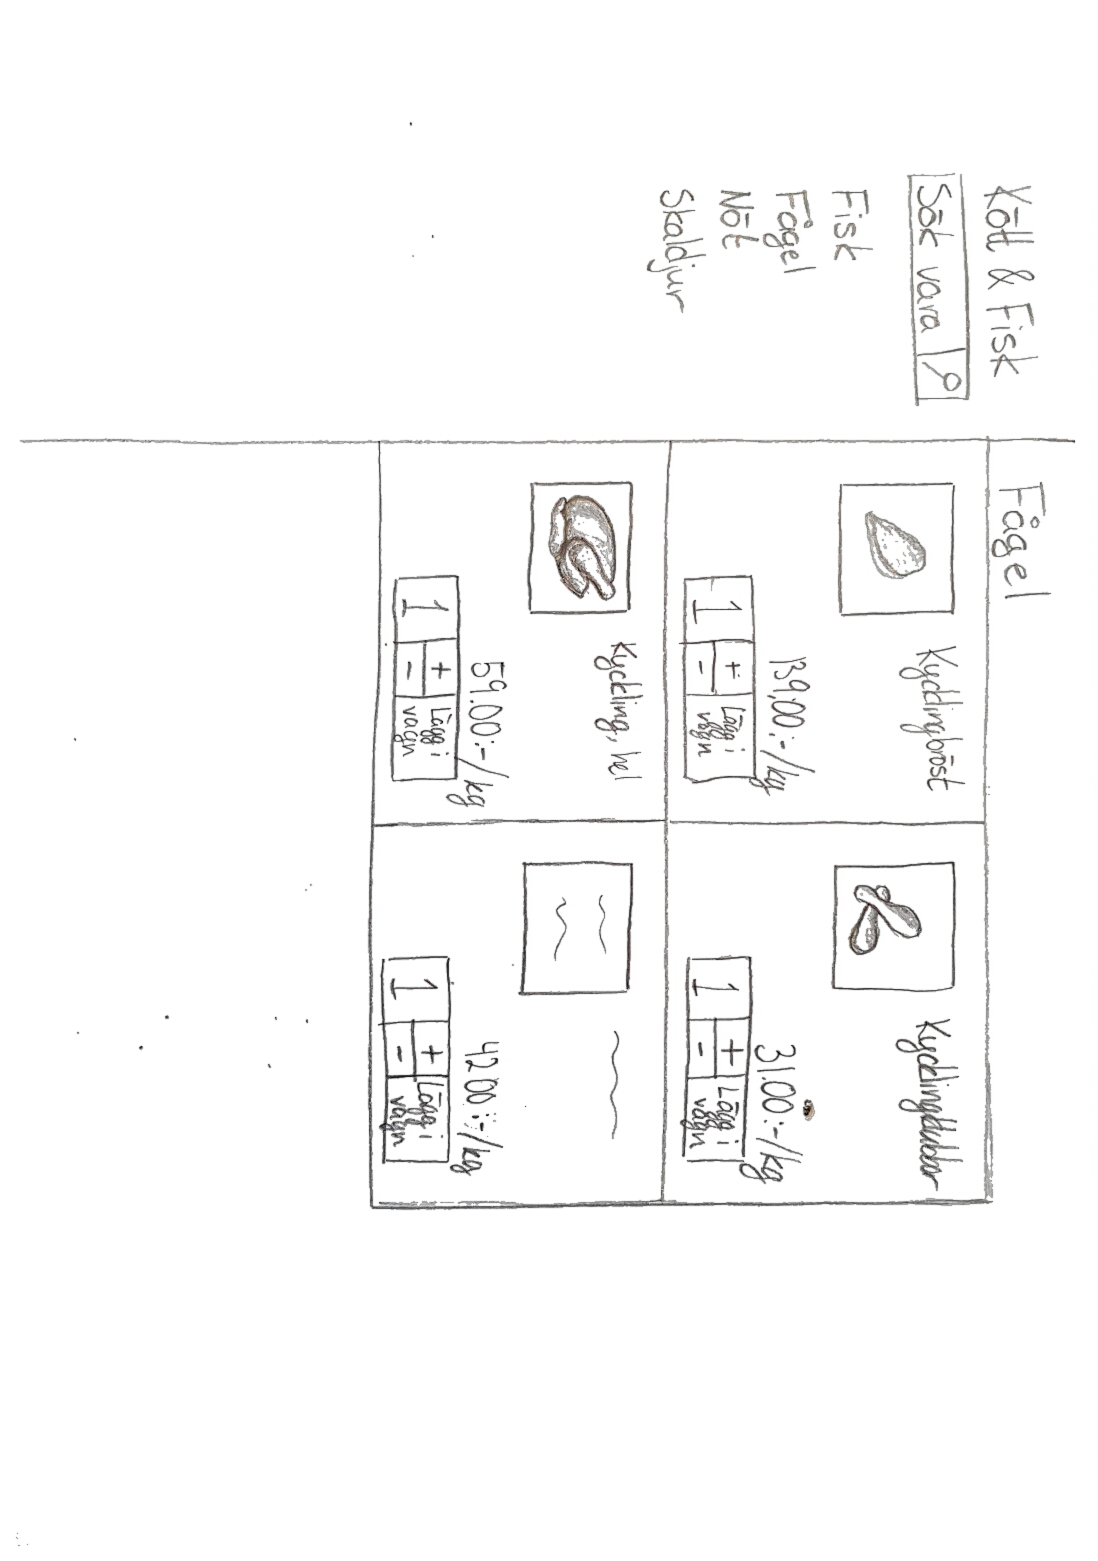 Kött & Fisk
Sök vara
Fisk
Fågel
Nöt
Skaldjur
Fågel
Kycklingbröst
139,00:-/kg
1 + - Lägg i
vagn
Kycklingklubbor
31.00:-/kg
1 + - Lägg i
vagn
Kyckling, hel
59.00:-/kg
1 + - Lägg i
vagn
42.00:-/kg
1 + - Lägg i
vagn